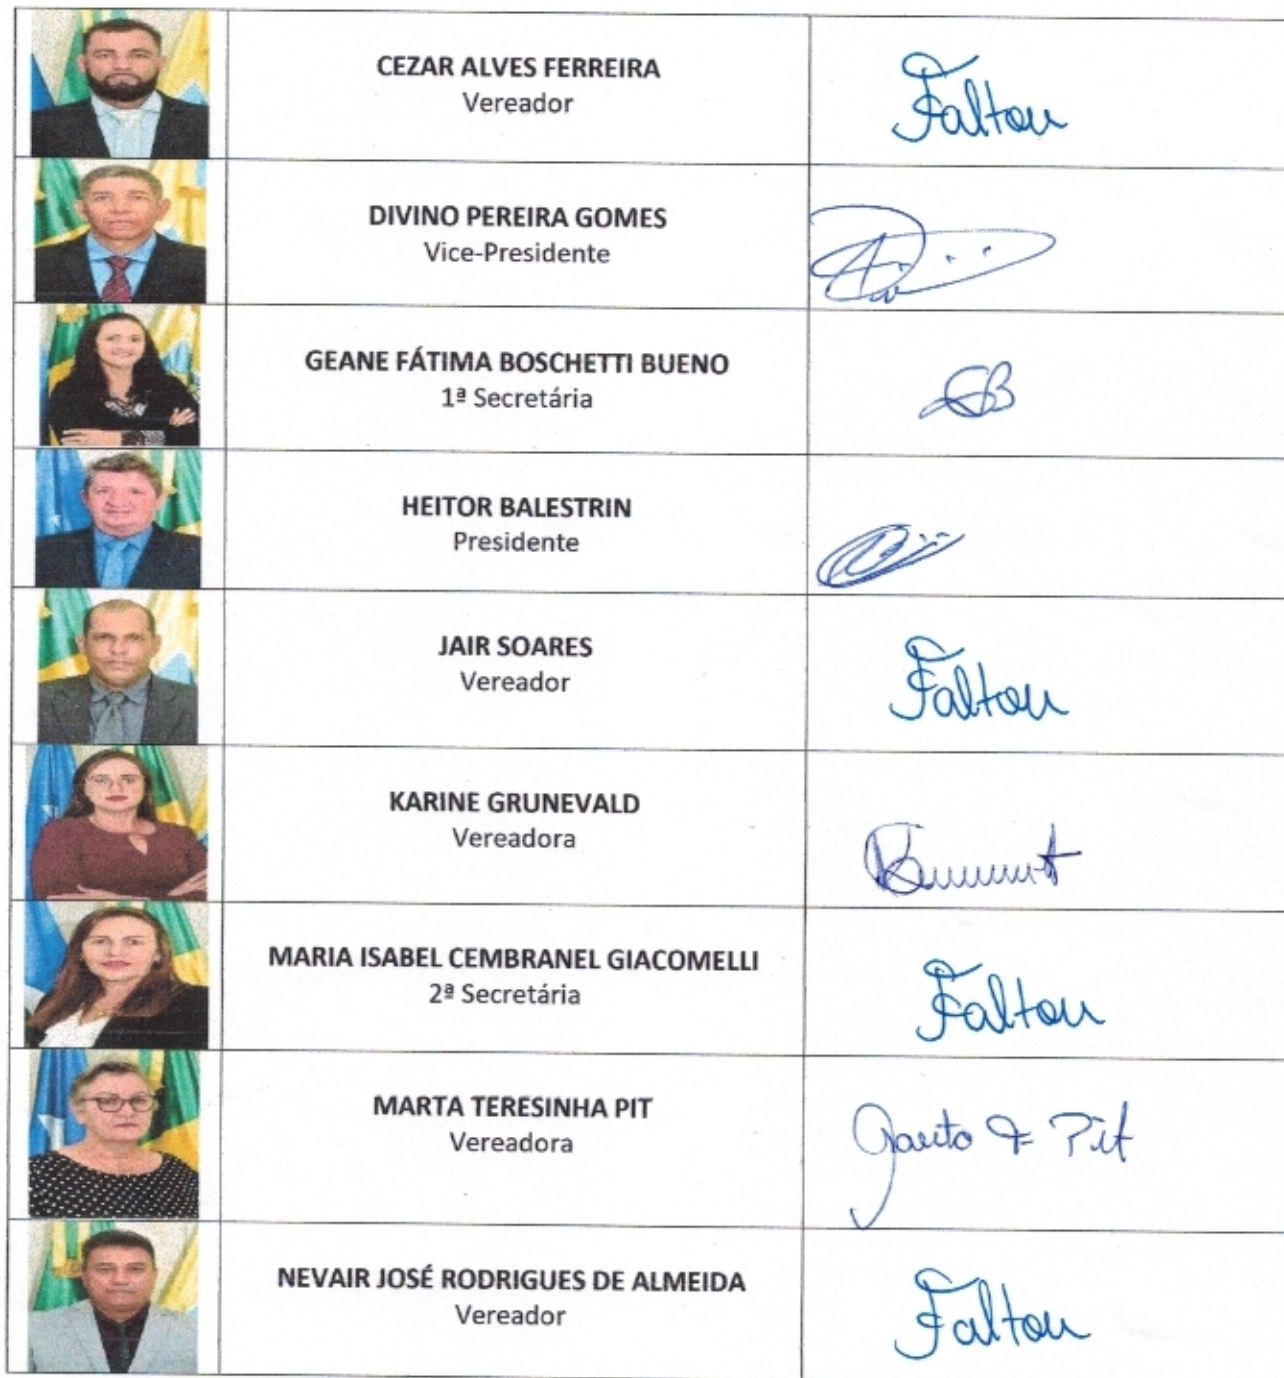 CEZAR ALVES FERREIRA
Vereador
Faltou
DIVINO PEREIRA GOMES
Vice-Presidente
GEANE FÁTIMA BOSCHETTI BUENO
1ª Secretária
GB
HEITOR BALESTRIN
Presidente
JAIR SOARES
Vereador
Faltou
KARINE GRUNEVALD
Vereadora
MARIA ISABEL CEMBRANEL GIACOMELLI
2ª Secretária
Faltou
MARTA TERESINHA PIT
Vereadora
Marta T Pit
NEVAIR JOSÉ RODRIGUES DE ALMEIDA
Vereador
Faltou